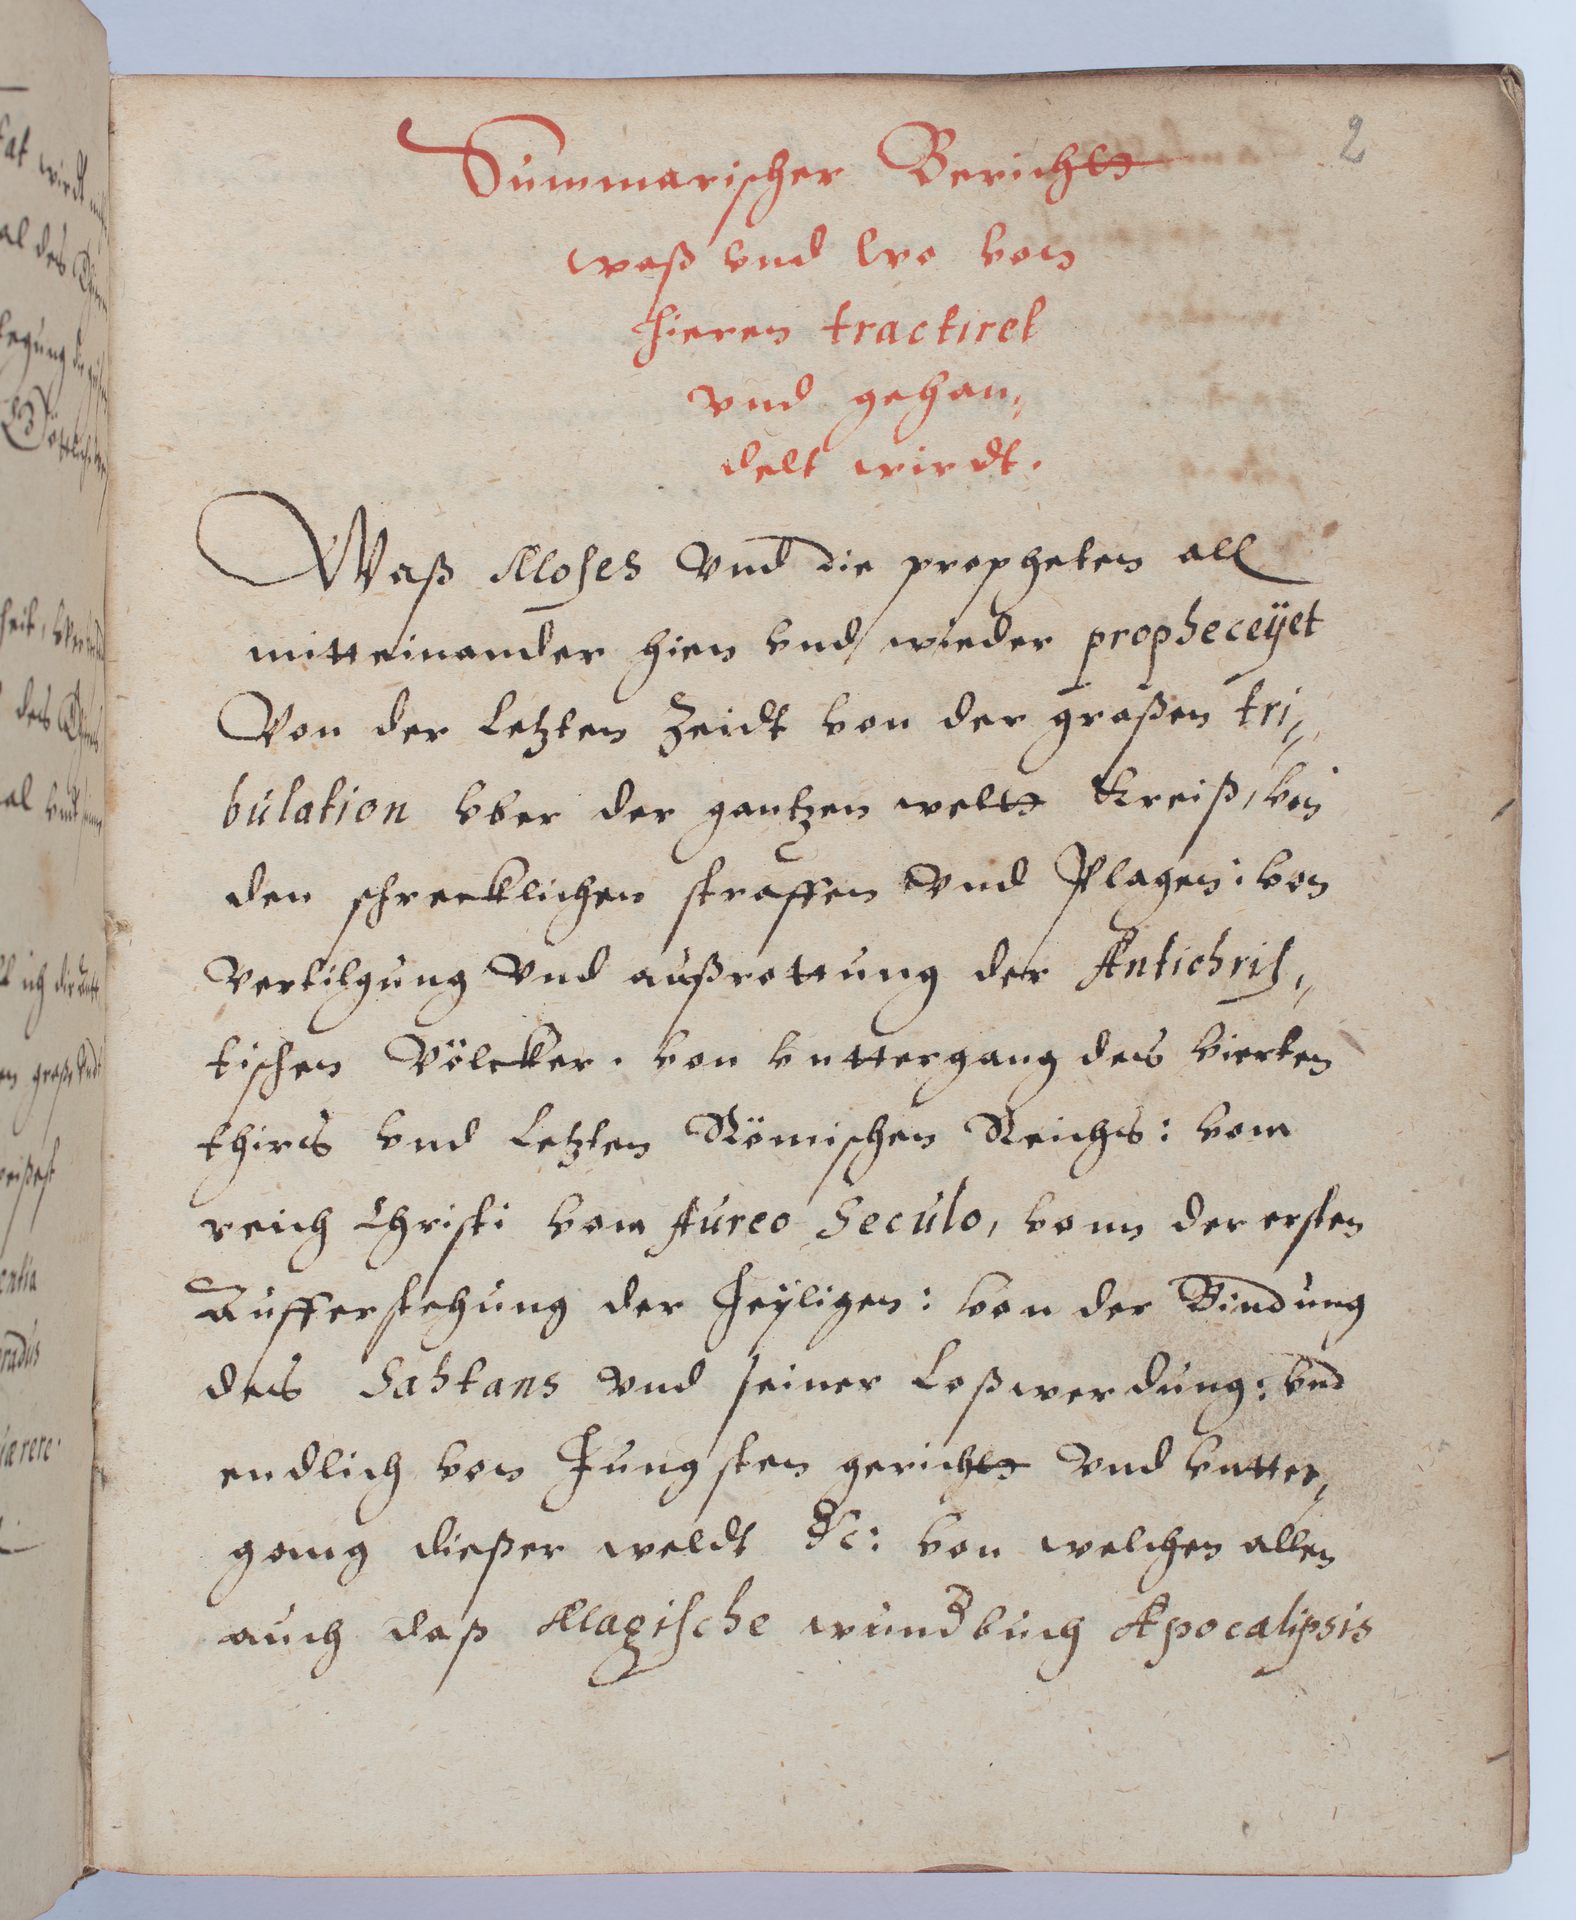 2
Summarischer Berichtt
waß vnd wo von
hieren tractiret
vnd gehan,,
delt wirdt.
Waß Moses vnd die propheten all
mitteinander hien vnd wieder propheceÿet
Von der letzten Zeidt von der großen tri,,
bulation vber der gantzen weltt Kreiß, von
den schrecklichen straffen vnd Plagen: von
vertilgung vnd außrottung der Antichris,,
tischen Völcker. von vnttergang des vierten
thirs vnd letzten Römischen Reichs: vom
reich Christi vom Aureo Seculo, vonn der ersten
Aufferstehung der Heÿligen: von der Bindung
des Sahtans vnd seiner Loßwerdung: vnd
endlich von Jungsten gerichtt vnd vntter,,
gang dießer weldt &c: von welchen allen
auch daß Magische wundbuch Apocalipsis